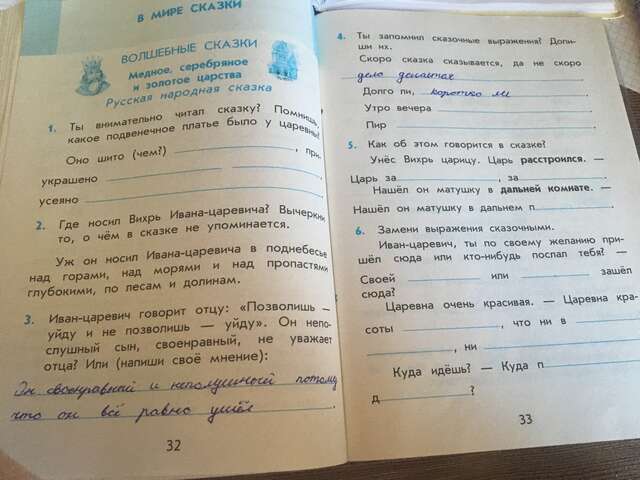 В МИРЕ СКАЗКИ
ВОЛШЕБНЫЕ СКАЗКИ
медное, серебряное
и золотое царства
Русская народная сказка
1. Ты внимательно читал сказку? Помнишь,
какое подвенечное платье было у царевны?
Оно шито (чем?)
, при-
украшено
усеяно
2. Где носил Вихрь Ивана-царевича? Вычеркни
то, о чём в сказке не упоминается.
Уж он носил Ивана-царевича в поднебесье
над горами, над морями и над пропастями
глубокими, по лесам и долинам.
3. Иван-царевич говорит отцу: «Позволишь —
уйду и не позволишь — уйду». Он непо-
слушный сын, своенравный, не уважает
отца? Или (напиши своё мнение):
Он своенравный и непослушной потому
что он всё равно ушёл
32
4. Ты запомнил сказочные выражения? Допи-
ши их.
Скоро сказка сказывается, да не скоро
дело делается
Долго ли, коротко ли
Утро вечера
Пир
5. Как об этом говорится в сказке?
Унёс Вихрь царицу. Царь расстроился. —
Царь за
, за
Нашёл он матушку в дальней комнате. —
Нашёл он матушку в дальнем п
6. Замени выражения сказочными.
Иван-царевич, ты по своему желанию при-
шёл сюда или кто-нибудь послал тебя? —
Своей
или
зашёл
сюда?
Царевна очень красивая. — Царевна кра-
соты
, что ни в
, ни
Куда идёшь? — Куда п
д
?
33